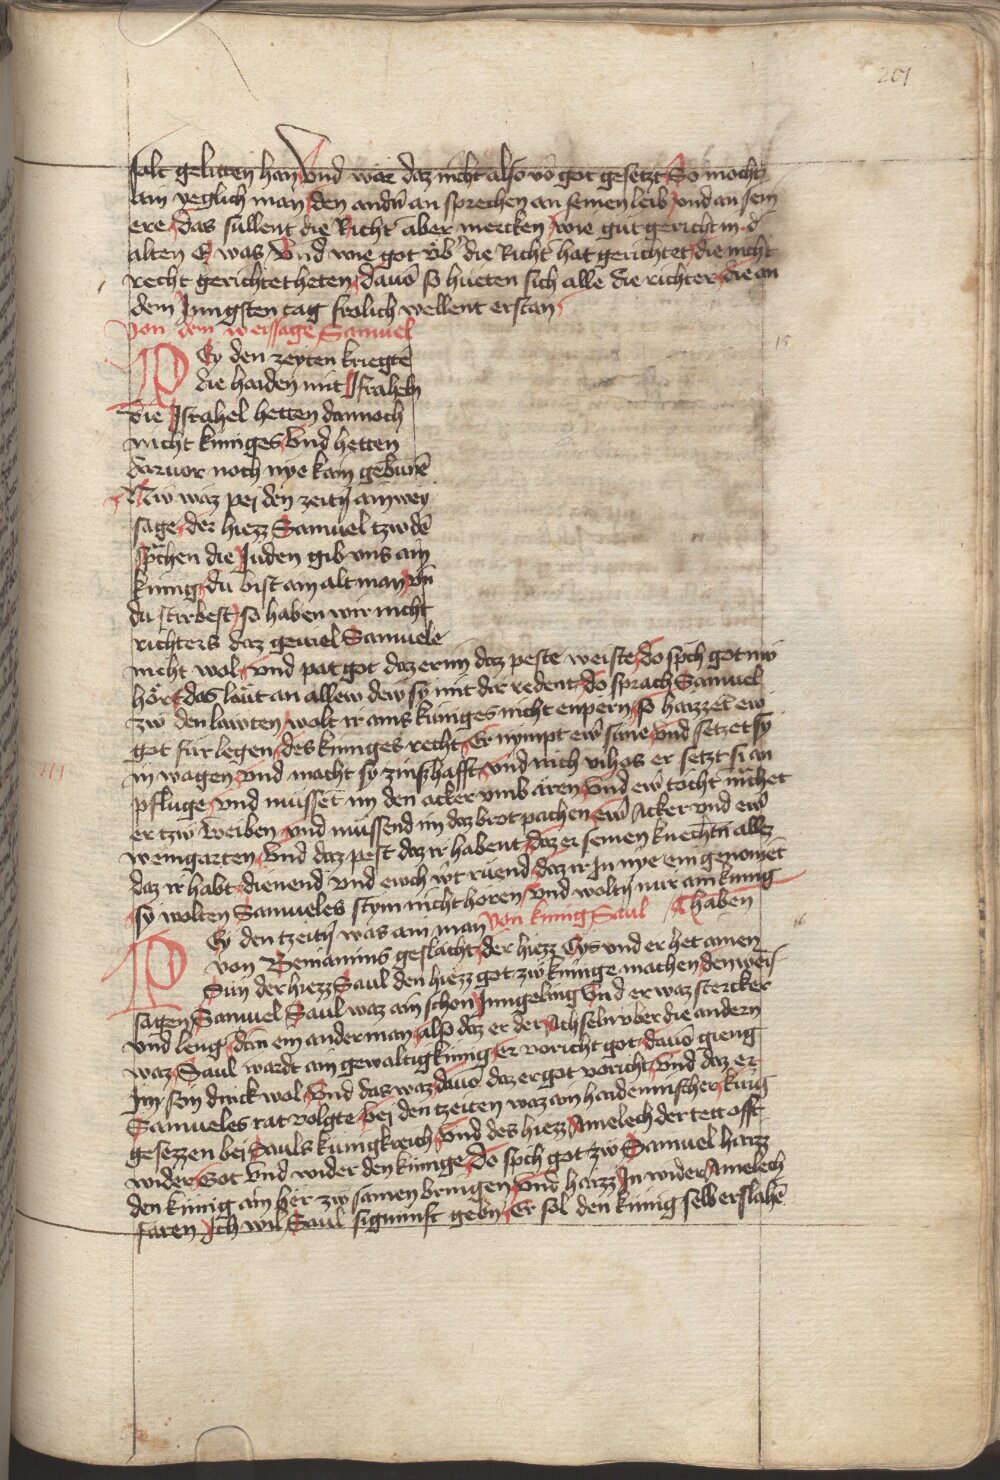 201
solt gelitten han Vnd wär daz nicht also võ got gesetzt So mocht
ain yeglich man den andñ an sprechen an seinen leib vnd an sein
ere das sullent die Richt̾ aber mercken wie gut gericht in d̾
alten E was Vnd wie got vb̾ die Richt̾ hat gerichtet die nicht
recht gerichtet heten dauõ so hueten sich alle die richter die an
dem Jungsten tag frölich wellent erstan
Von dem weissage Samuel
Ey den zeyten kriegtē
die haiden mit Israheln
die Israhel hetten dannoch
nicht küniges Vnd hetten
daruor noch nye kain gebunē
Nw waz pei den zeitñ ain wey
sage der hiezz Samuel tzw dē
sp̾chen die Juden gib vns ain
künig du bist ain alt man vñ
du stirbest so haben wir nicht
richters daz geuiel Samuele
nicht wol vnd pat got daz er im daz peste weiste do sp̾ch got nw
hör das läut an allew dew sy mit dir redent do sprach Samuel
zw den lawten wolt ir ains küniges nicht enpern so haizzet ew
got für legen des küniges recht Er nympt ew̾ süne vnd setzet sy
in wagen vnd macht sy zinszhafft vnd auch er setzt si an
pfluge vnd müssēt im den acker vmb ären Vnd ew̾ töcht̾ machet
er tzw weiben vnd müssend im daz brot pachen ew̾ Acker vnd ew̾
weingarten Vnd daz pest daz ir habent daz er seinen knechtñ allez
daz ir habt dienend vnd ewch wirt rüend daz ir In nye ein genomēt
sy wolten Samueles stym nicht hören vnd woltñ nur ain künig
haben
Von künig Saul
Ey den tzeitñ was ain man
von Beniamins geslächt der hiezz Cys vnd er het ainen
Sün der hiezz Saul den hiezz got zw künige machen den weis
sagen Samuel Saul waz ain schon Jungeling Vnd er waz stercker
vnd leng̾ dan ein ander man also daz er der Achseln vber die andern
waz Saul wardt ain gewaltig künig er voricht got dauõ gieng
Im sein dinck wol Vnd das waz dauõ daz er got voricht Vnd daz er
Samueles rat volgte bei den tzeiten waz ain haidennischer künig
gesezzen bei Sauls künigkreich Vnd des hiezz Amelech der tett offt
wider Got Vnd wider den künige Do sp̾ch got zw Samuel haizz
den künig ain her zw samen bringen Vnd haizz In wider Amelech
faren Ich wil Saul signünft gebñ Er sol den künig selber slahē